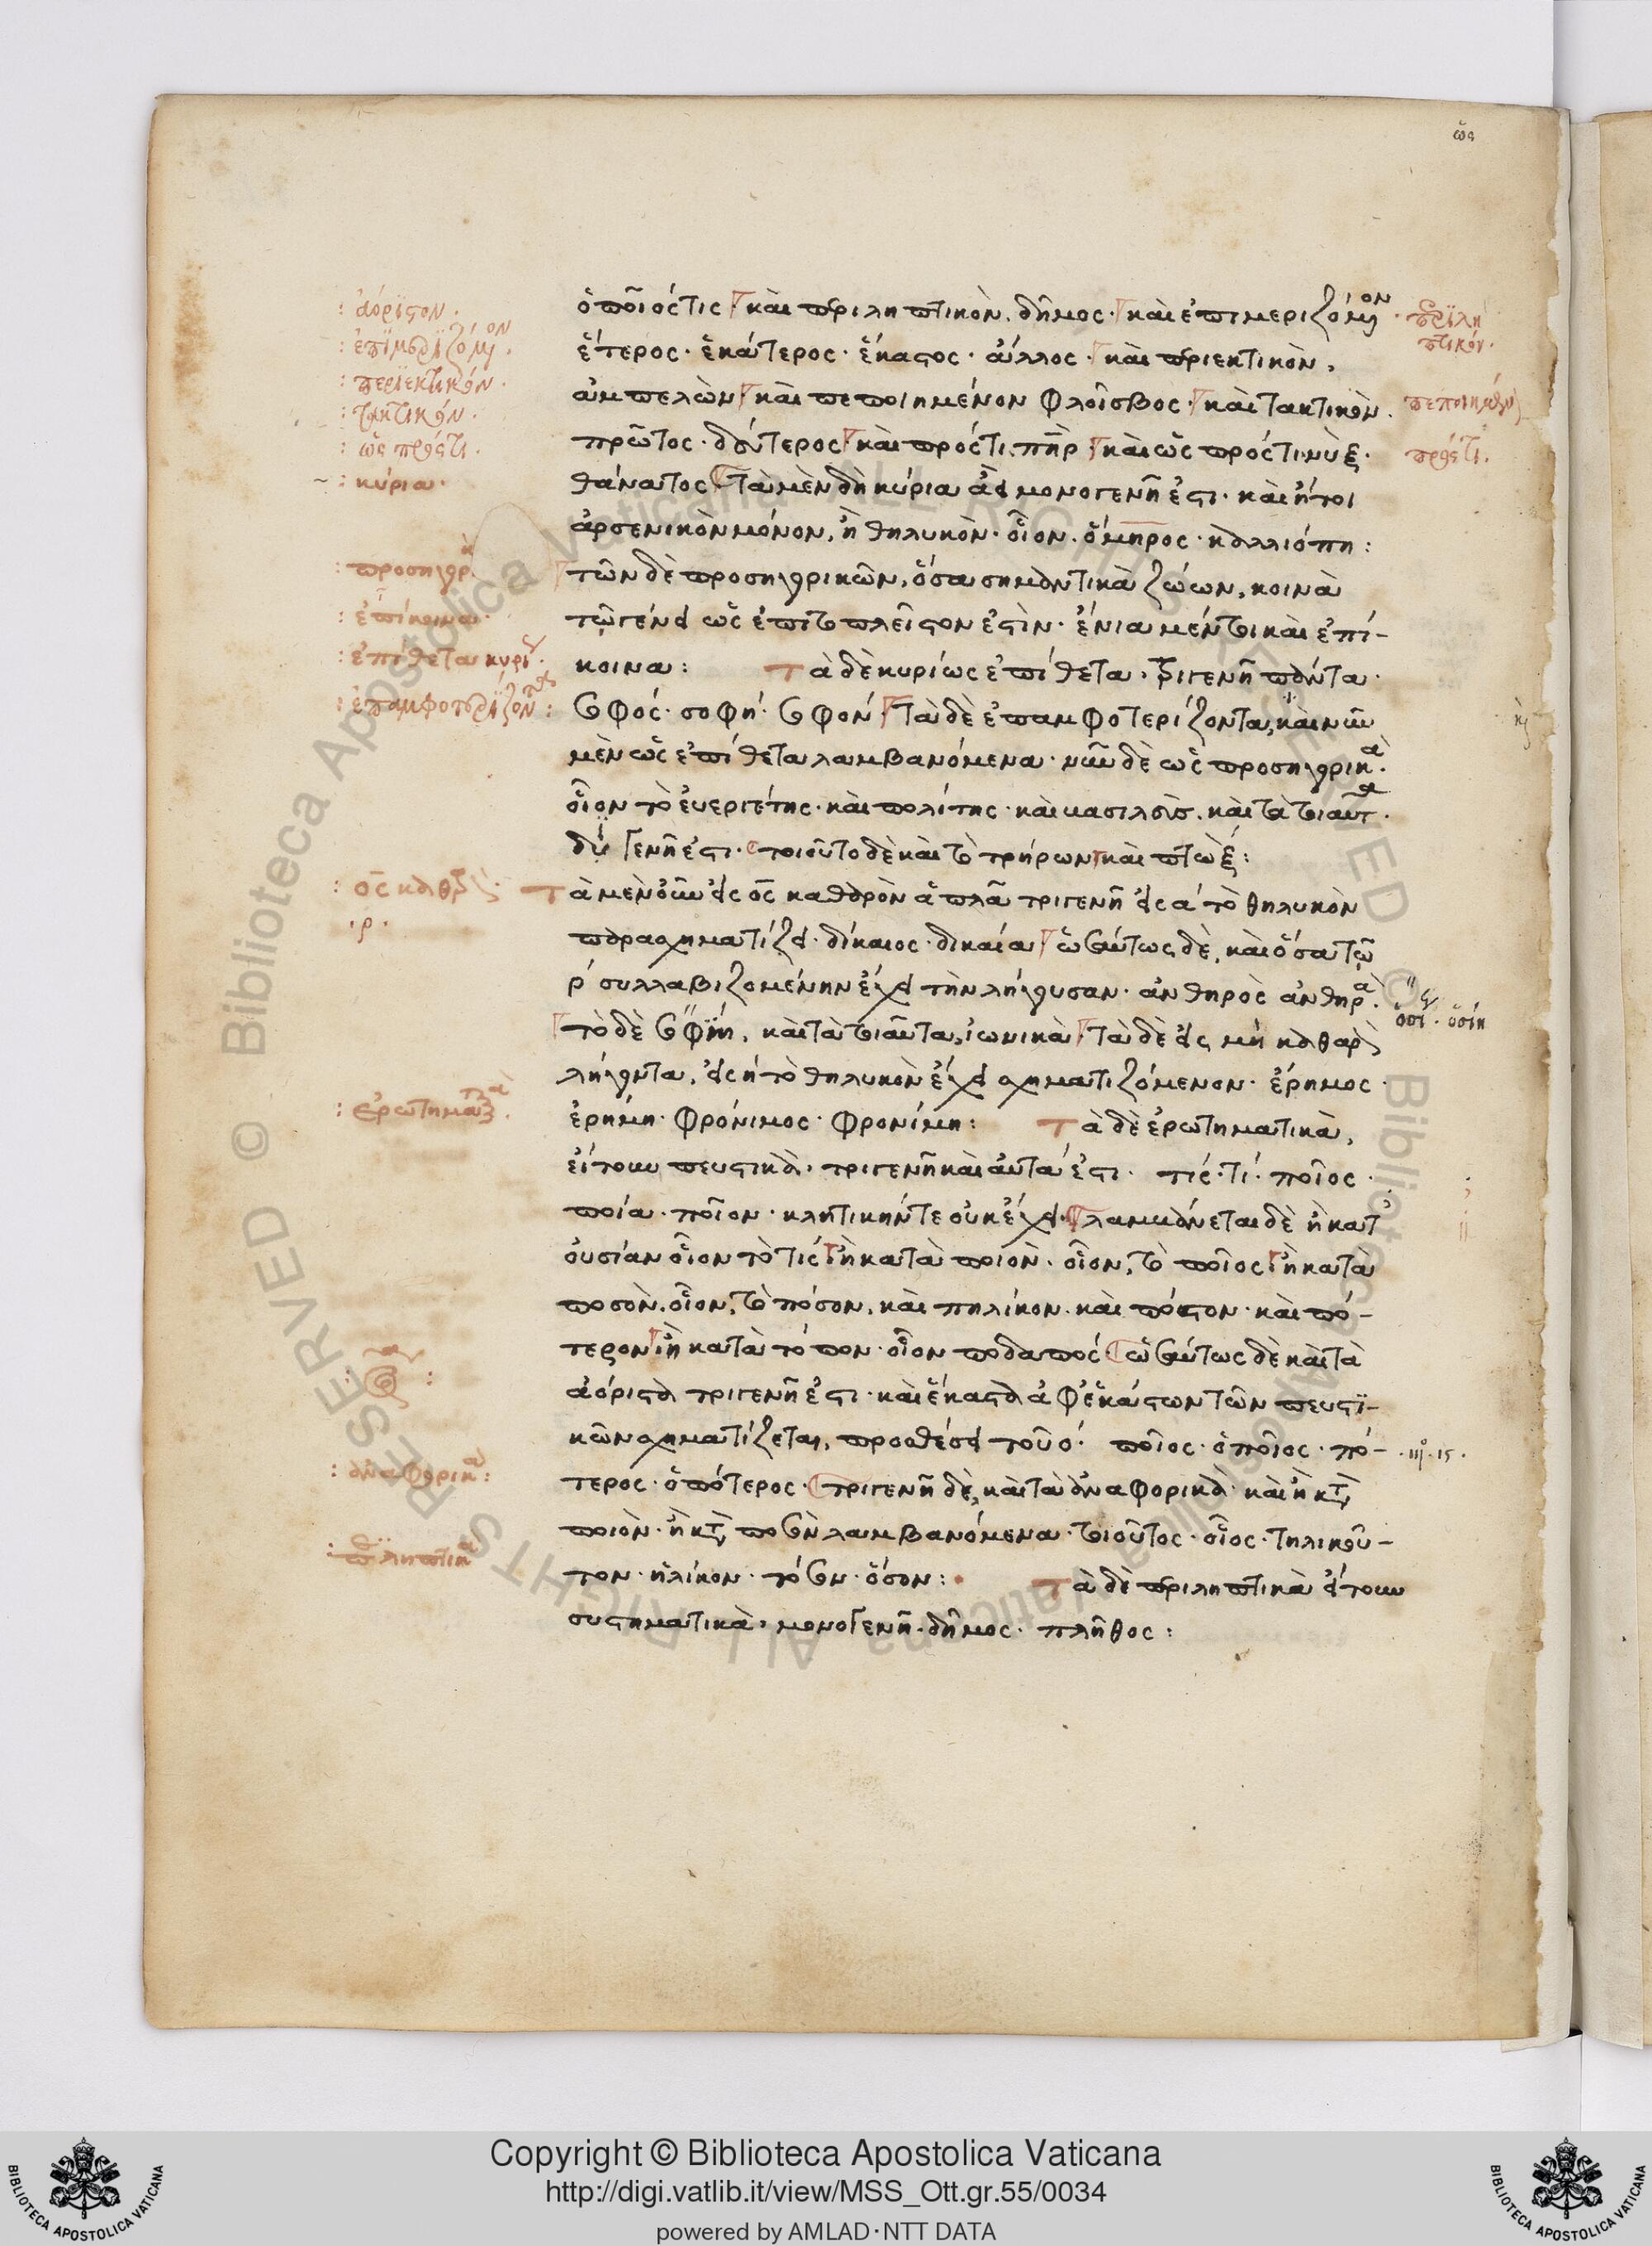 ὡς
ὁποῖός τις καὶ περιληπτικὸν. δῆμος· καὶ ἐπιμεριζόμενον·
ἕτερος· ἑκάτερος· ἕκαστος· ἄλλος· καὶ περιεκτικὸν,
ἀμπελὼν καὶ πεποιημένον φλοῖσβος· καὶ τακτικὸν.
πρῶτος· δεύτερος καὶ πρός τι. πατήρ καὶ ὡς πρός τι. νὺξ·
θάνατος τὰ μὲν δὴ κύρια ἀεὶ μονογενῆ ἐστι· καὶ ἤτοι
ἀρσενικὸν μόνον, ἢ θηλυκὸν· οἷον. ὅμηρος· καλλιόπη:
τῶν δὲ προσηγορικῶν, ὅσα σημαντικὰ ζώων, κοινὰ
τῷ γένει ὡς ἐπὶ τὸ πλεῖστον ἐστὶν· ἔνια μέντοι καὶ ἐπί-
κοινα: τὰ δὲ κυρίως ἐπίθετα, τριγενῆ πάντα·
σοφός· σοφή· σοφόν τὰ δὲ ἐπαμφοτερίζοντα, καὶ νῦν
μὲν ὡς ἐπίθετα λαμβανόμενα· νῦν δὲ ὡς προσηγορικὰ·
οἷον τὸ εὐεργέτης· καὶ πολίτης· καὶ βασιλεὺς. καὶ τὰ τοιαῦτα·
δύο γένη ἐστι· τοιοῦτο δὲ καὶ τὸ τρήρων καὶ πτὼξ:
τὰ μὲν οὖν εἰς ος καθαρὸν ἁπλᾶ τριγενῆ εἰς α τὸ θηλυκὸν
παρασχηματίζει· δίκαιος· δικαία ὡσαύτως δὲ, καὶ ὅσα τῷ
ρ συλλαβιζομένην ἔχει τὴν λήγουσαν· ἀνθηρὸς ἀνθηρὰ·
τὰ δὲ εἰς μὴ καθαρὸν
λήγοντα, εἰς η τὸ θηλυκὸν ἔχει σχηματιζόμενον· ἔρημος·
ἐρήμη· φρόνιμος· φρονίμη: τὰ δὲ ἐρωτηματικὰ,
εἴτουν πευστικὰ, τριγενῆ καὶ αὐτά ἐστι· τίς· τί· ποῖος·
ποία· ποῖον· κλητικήν τε οὐκ ἔχει· λαμβάνεται δὲ ἢ κατ'
οὐσίαν οἷον τὸ τίς ἢ κατὰ ποιὸν· οἷον, τὸ ποῖος ἢ κατὰ
ποσὸν. οἷον, τὸ πόσον, καὶ πηλίκον. καὶ πόστον· καὶ πό-
τερον ἢ κατὰ τόπον· οἷον ποδαπός ὡσαύτως δὲ καὶ τὰ
ἀόριστα τριγενῆ ἐστι· καὶ ἕκαστα ἀφ' ἑκάστων τῶν πευστι-
κῶν σχηματίζεται, προσθέσει τοῦ ο· ποῖος· ὁποῖος· πό-
τερος· ὁπότερος· τριγενῆ δὲ, καὶ τὰ ἀναφορικὰ· καὶ ἢ κατὰ
ποιὸν· ἢ κατὰ ποσὸν λαμβανόμενα· τοιοῦτος· οἷος· τηλικοῦ-
τον· ἡλίκον· τόσον· ὅσον: τὰ δὲ περιληπτικὰ εἴτουν
συστηματικὰ, μονογενῆ· δῆμος· πλῆθος:
: ἀόριστον·
: ἐπιμεριζόμενον·
: περιεκτικόν·
: τακτικόν·
: ὡς πρός τι·
: κύρια·
: προσηγορικὰ
: ἐπίκοινα·
: ἐπίθετα κυρίως·
: ἐπαμφοτερίζοντα:
: ος καθαρὸν·
·ρ·
: ἐρωτηματικὰ·
: ἀναφορικὰ:
: περιληπτικὰ
περιλη
πτικόν·
πεποιημένον
πρός τι.
Copyright © Biblioteca Apostolica Vaticana
http://digi.vatlib.it/view/MSS_Ott.gr.55/0034
powered by AMLAD·NTT DATA
BIBLIOTECA APOSTOLICA VATICANA
BIBLIOTECA APOSTOLICA VATICANA